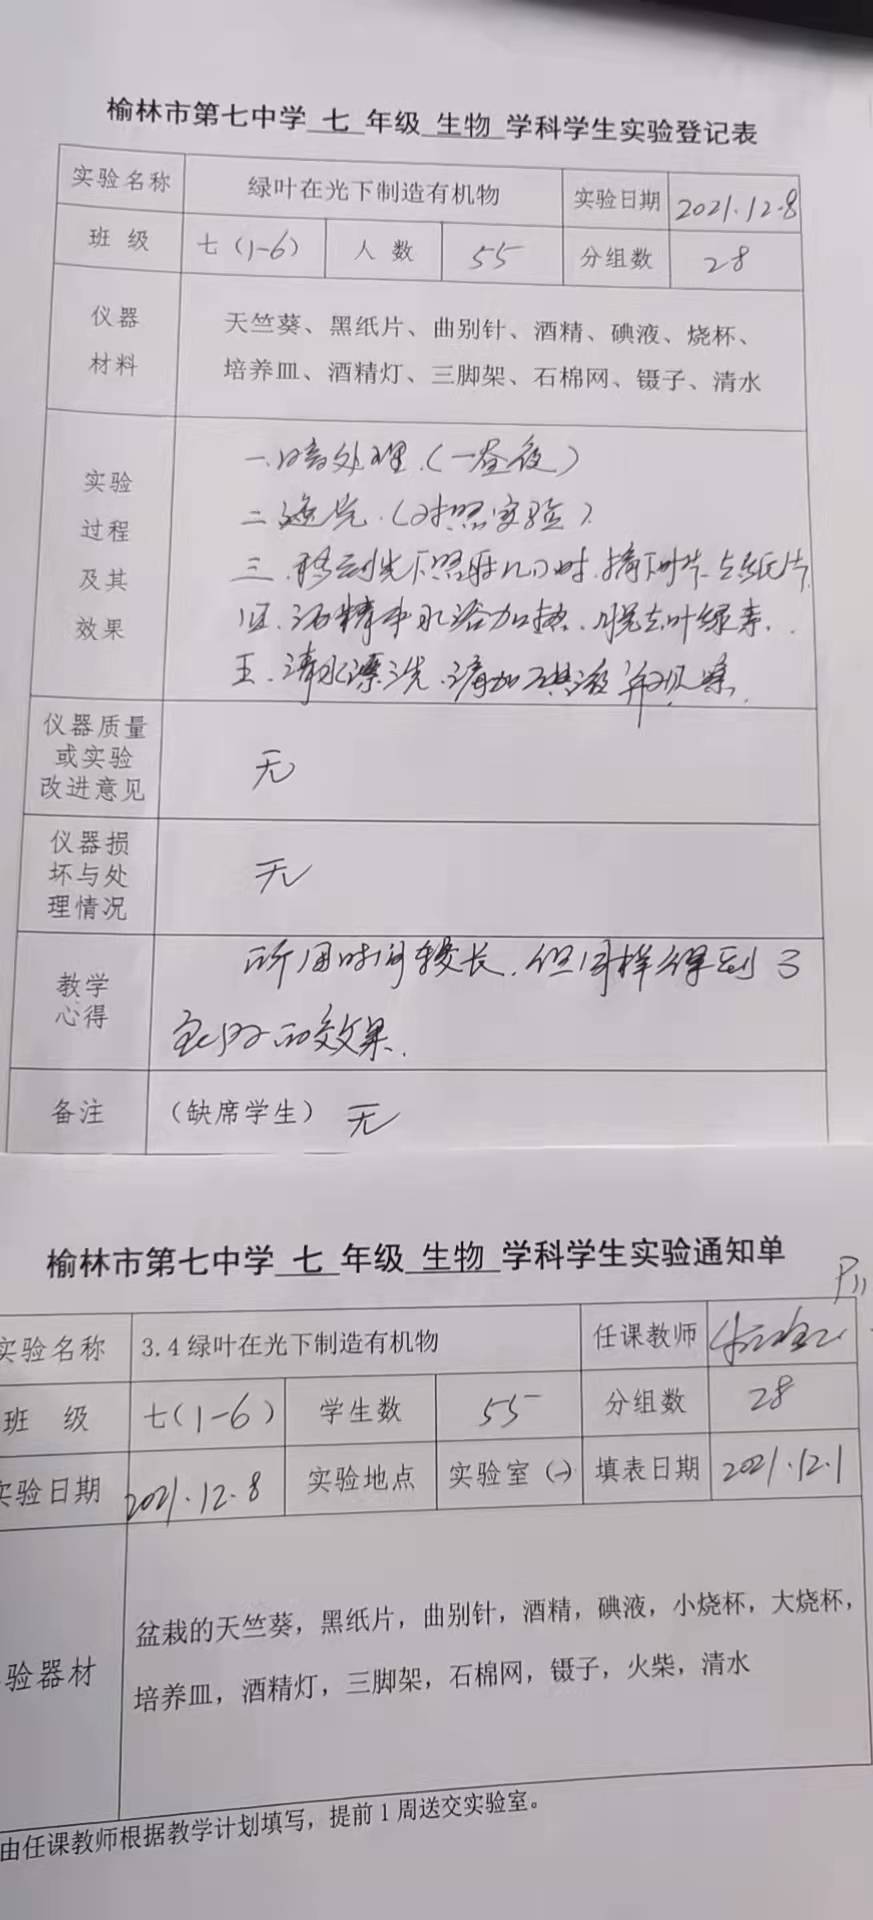 榆林市第七中学 七 年级 生物 学科学生实验登记表
实验名称 绿叶在光下制造有机物 实验日期 2021.12.8
班 级 七(1-6) 人 数 55 分组数 28
仪器材料 天竺葵、黑纸片、曲别针、酒精、碘液、烧杯、
培养皿、酒精灯、三脚架、石棉网、镊子、清水
实验过程及其效果
一.暗处理.(一昼夜)
二.遮光.(对照实验).
三.移到光下照射几小时.摘下叶片.去纸片.
四.酒精中水浴加热.脱去叶绿素.
五.清水漂洗.滴加碘液并观察.
仪器质量或实验改进意见 无
仪器损坏与处理情况 无
教学心得 所用时间较长.但同样得到了
的效果.
备注 (缺席学生) 无
榆林市第七中学 七 年级 生物 学科学生实验通知单
P11
实验名称 3.4 绿叶在光下制造有机物 任课教师
班 级 七(1-6) 学生数 55 分组数 28
实验日期 2021.12.8 实验地点 实验室(一) 填表日期 2021.12.1
验器材 盆栽的天竺葵，黑纸片，曲别针，酒精，碘液，小烧杯，大烧杯，
培养皿，酒精灯，三脚架，石棉网，镊子，火柴，清水
由任课教师根据教学计划填写，提前1周送交实验室。